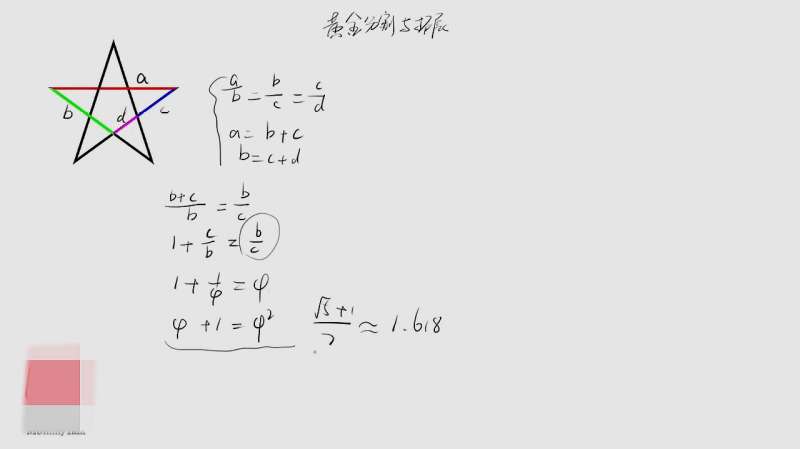 黄金分割与拓展
a
b
d
c
a/b = b/c = c/d
a = b+c
b = c+d
(b+c)/b = b/c
1 + c/b = b/c
1 + 1/φ = φ
φ + 1 = φ²
(√5+1)/2 ≈ 1.618